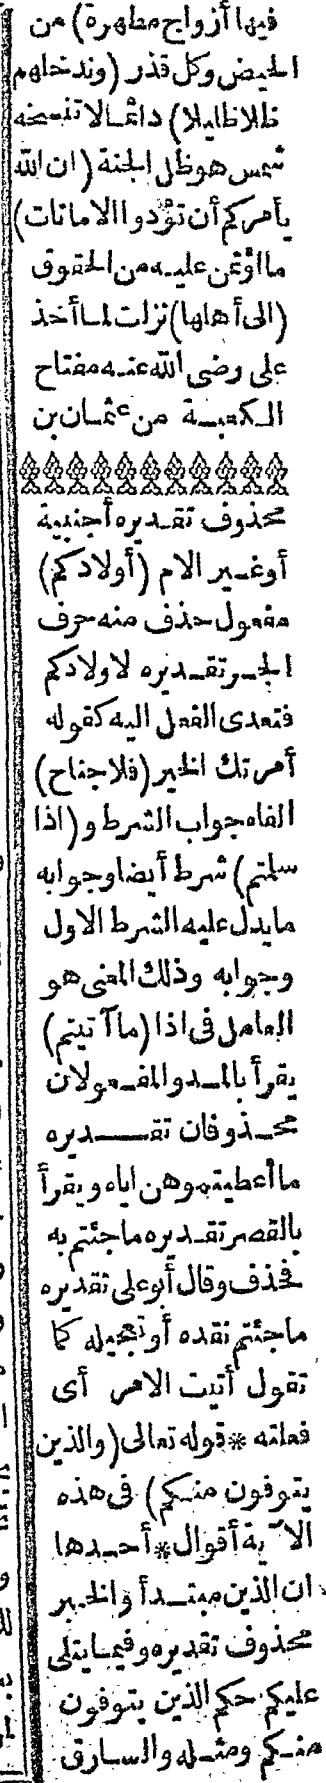 فيها أزواج مطهرة) من
الحيض وكل قذر (وندخلهم
ظلا ظليلا) دائما لا تنسخه
شمس هو ظل الجنة (ان الله
يأمركم أن تؤدوا الامانات)
ما اؤتمن عليه من الحقوق
(الى أهلها) نزلت لما أخذ
على رضى الله عنه مفتاح
الكعبة من عثمان بن
محذوف تقديره أجنبية
أو غير الام (أولادكم)
مفعول حذف منه حرف
الجر تقديره لاولادكم
فتعدى الفعل اليه كقوله
أمرتك الخير (فلا جناح)
الفاء جواب الشرط و (اذا
سلمتم) شرط أيضا وجوابه
ما يدل عليه الشرط الاول
وجوابه وذلك المعنى هو
العامل فى اذا (ما آتيتم)
يقرأ بالمد والمفعولان
محذوفان تقديره
ما أعطيتموهن اياه ويقرأ
بالقصر تقديره ما جئتم به
فحذف وقال أبو على تقديره
ما جئتم نقده أو تعجيله كما
تقول أتيت الامر أى
فعلته * قوله تعالى (والذين
يتوفون منكم) فى هذه
الآية أقوال * أحدها
ان الذين مبتدأ والخبر
محذوف تقديره وفيما يتلى
عليكم حكم الذين يتوفون
منكم ومثله والسارق